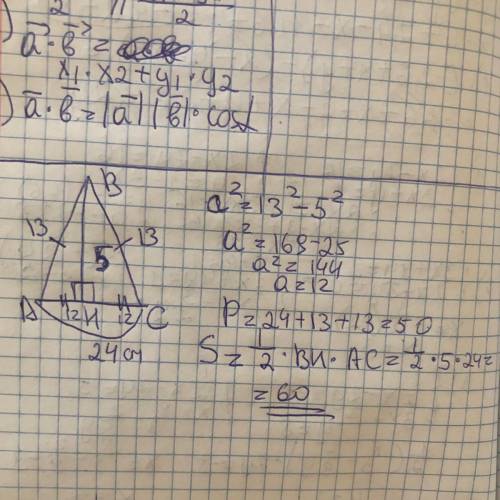 2 2
) a⃗ · b⃗ =
x1 · x2 + y1 · y2
) a̅ · b̅ = |a̅| |b̅| · cosα
B
13 13
5
A 12 H 12 C
24 см
a² = 13² - 5²
a² = 169 - 25
a² = 144
a = 12
P = 24 + 13 + 13 = 50
S = 1/2 · BH · AC = 1/2 · 5 · 24 =
= 60